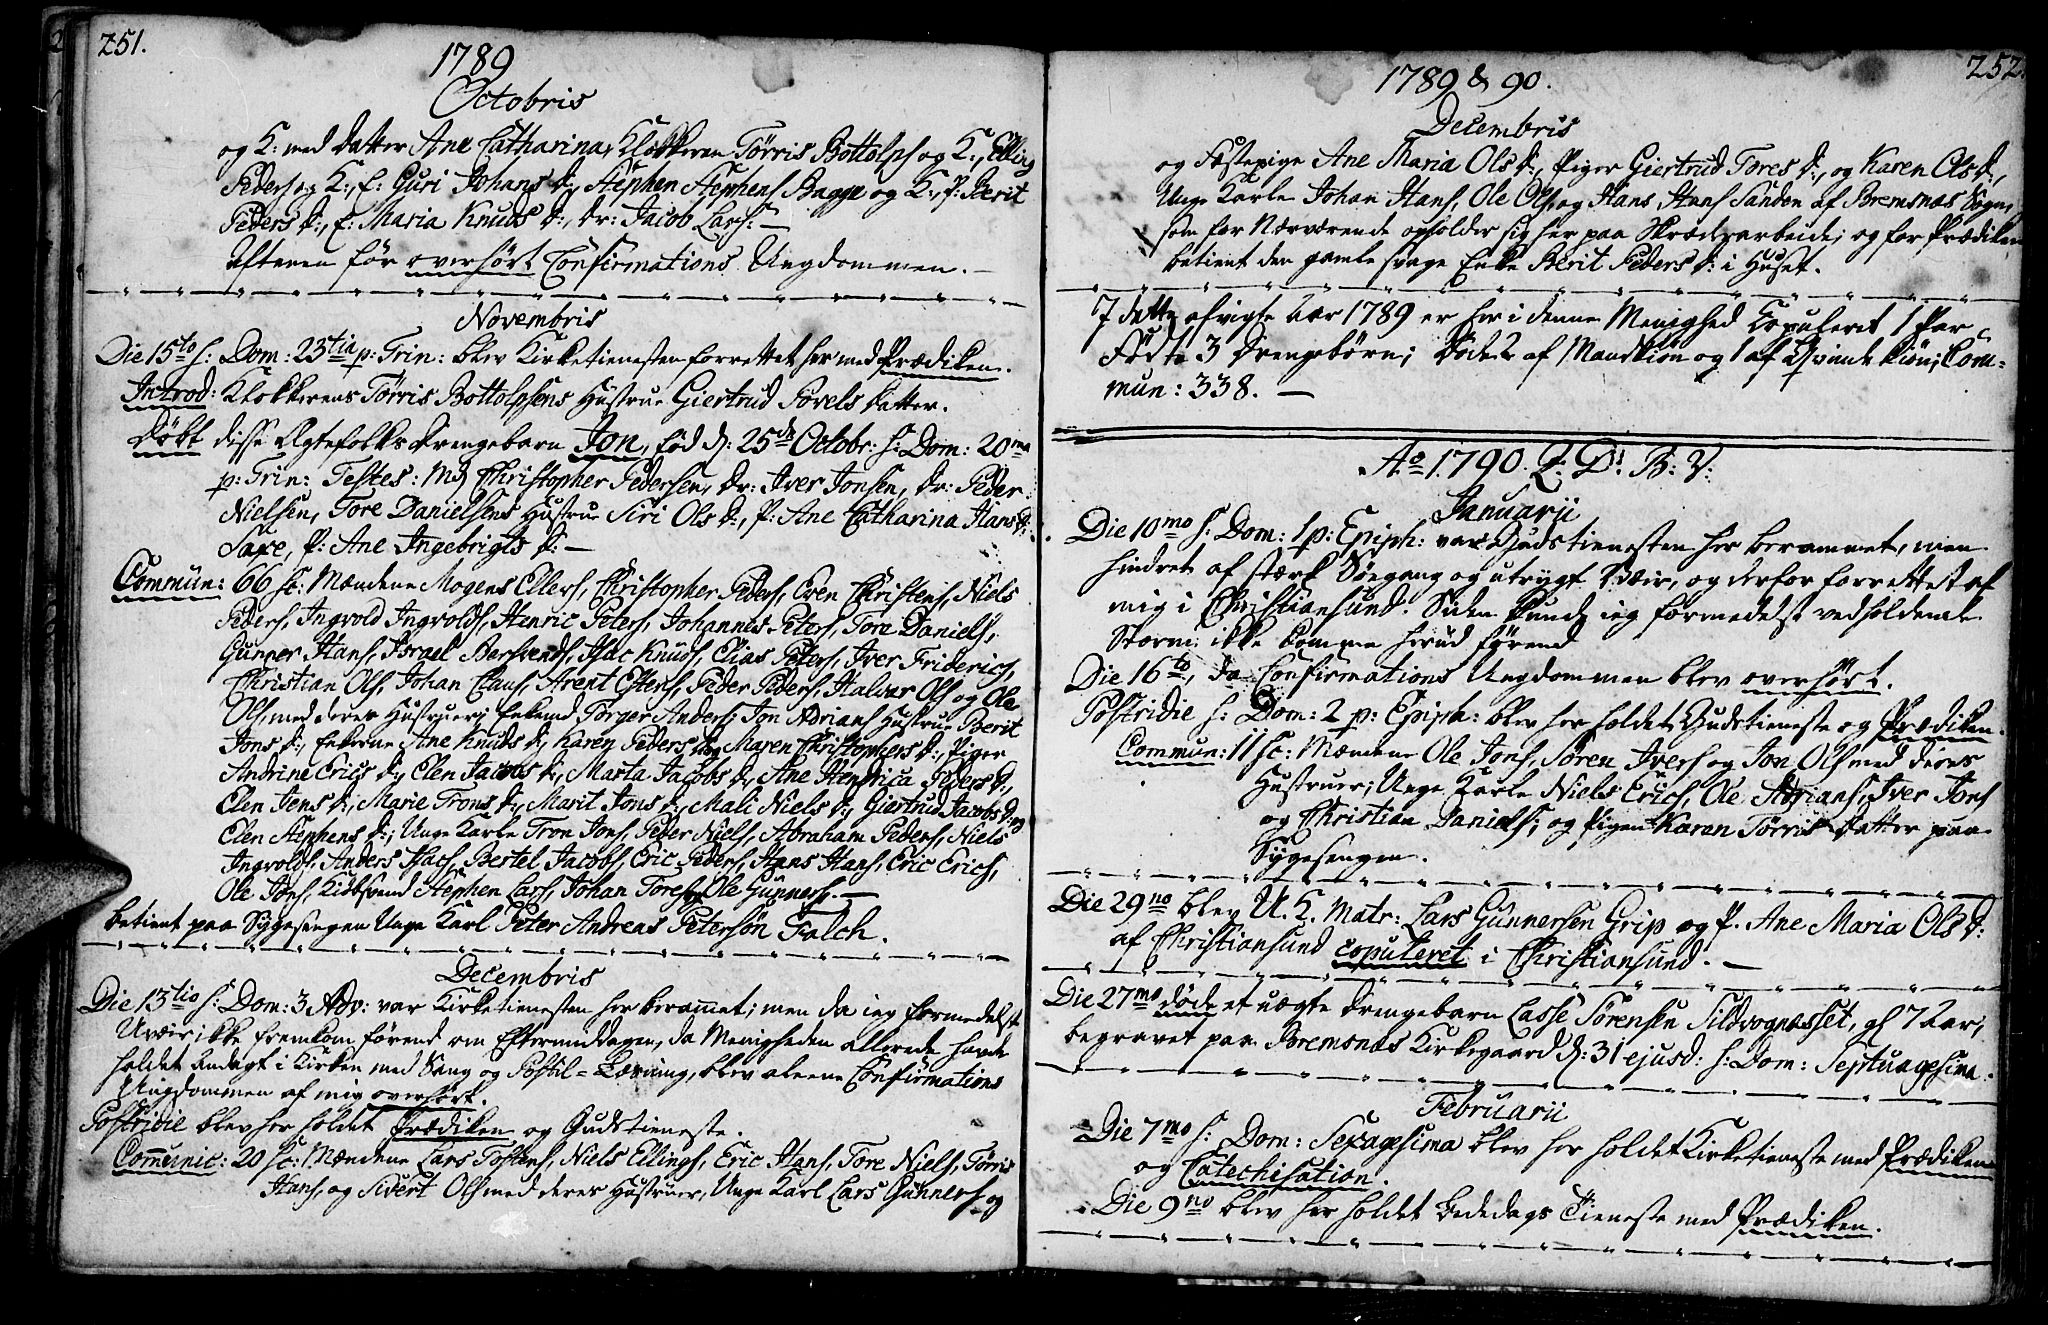 251.
1789
Octobris
og K: med datter Ane Catharina, Klokkeren Tørris Bottolphs og K:, Elling
Peders og K:, E: Guri Johans D:, Stephen Stephens Bagge og K:, P: Berit
Peders D:, E: Maria Knuds D:, Dr: Jacob Lars: —
Aftenen før overhørt Confirmations Ungdommen. —
Novembris
Die 15to s: Dom: 23tia p: Trin: blev Kirketienesten forrettet her med Prædiken.
Introd: Klokkerens Tørris Bottolphsens Hustrue Giertrud Povels datter.
Døbt disse Ægtefolks Drengebarn Jon, fød d: 25de Octobr: s: Dom: 20ma
p: Trin: Testes: Md Christopher Pedersen, Dr: Iver Jonsen, Dr: Peder
Nielsen, Tore Danielsens Hustrue Siri Ols D:, P: Ane Catharina Hans D:
Saxe, P: Ane Ingebrigts D: —
Commun: 66 sc: Mændene Mogens Ellers, Christopher Peders, Even Christens, Niels
Peders, Ingvold Ingvolds, Henric Peters, Johannes Peters, Tore Daniels,
Gunner Hans, Israel Barsvends, Isac Knuds, Elias Peters, Iver Friderics,
Christian Ols, Johan Claus, Arent Estens, Peder Peders, Halvor Ols og Ole
Ols, med deres Hustruer; Enkemd Torger Anders; Jon Adrians Hustrue Berit
Jons D:, Enkerne Ane Knuds D:, Karen Peders D: og Maren Christophers D:, Piger
Andrine Erics D:, Elen Jacobs D:, Marta Jacobs D:, Ane Hendrica Peders D:,
Elen Jens D:, Marie Trons D:, Marit Jons D:, Mali Niels D:, Giertrud Jacobs D: og
Elen Stephens D:; Unge Karle Tron Jons, Peder Niels, Abraham Peders, Niels
Ingvolds, Anders Isacs, Bertel Jacobs, Eric Peders, Hans Hans, Eric Erics,
Ole Jons, Kiøbsvend Stephen Lars, Johan Tores og Ole Gunners. —
betient paa Sygesengen Unge Karl Peter Andreas Petersøn Falch.
Decembris
Die 13tio s: Dom: 3 Adv: var Kirketienesten her berammet; men da ieg formedelst
Uveir ikke fremkom førend om Eftermiddagen, da Menigheden allerede havde
holdet Andagt i Kirken med Sang og Postil-Læsning, blev aleene Confirmations
Ungdommen af mig overhørt.
Postridie blev her holdet Prædiken og Gudstieneste.
Communic: 20 sc: Mændene Lars Tostens, Niels Ellings, Eric Hans, Tore Niels, Tørris
Hans, og Sivert Ols med deres Hustruer, Unge Karl Lars Gunners og
252.
1789 & 90.
Decembris
og Fæstepige Ane Maria Ols D:, Piger Giertrud Tores D:, og Karen Ols D:,
Unge Karle Johan Hans, Ole Ols, og Hans Hans Sanden af Bremsnæs Sogn,
som for Nærværende opholder sig her paa Skræderarbeide; og for Prædiken
betient den gamle svage Enke Berit Peders D: i Huset.
I dette afvigte Aar 1789 er her i denne Menighed Copuleret 1 Par
Fødte 3 Drengebørn; Døde 2 af Mandkiøn og 1 af Qvindekiøn; Com-
mun: 338. —
Ao 1790. Q: D: B: V:
Januarii
Die 10mo s: Dom: 1 p: Epiph: var Gudstienesten her berammet, men
hindret af stærk Søegang og utrygt Veir, og derfor forrettet af
mig i Christiansund. Siden kunde ieg formedelst vedholdende
Storm ikke komme herud førend
Die 16to, da Confirmations Ungdommen blev overhørt.
Postridie s: Dom: 2 p: Epiph: blev her holdet Gudstieneste og Prædiken.
Commun: 11 sc: Mændene Ole Jons, Søren Ivers og Jon Ols med deres
Hustruer; Unge Karle Niels Erics, Ole Adrians, Iver Jons
og Christian Daniels; og Pigen Karen Tørris datter paa
Sygesengen.
Die 29no blev U. K. Matr: Lars Gunnersen Grip og P. Ane Maria Ols D:
af Christiansund copuleret i Christiansund. —
Die 27mo døde et uægte Drengebarn Lasse Sørensen Sildvognæsset, gl 7 Aar,
begravet paa Bremsnæs Kirkegaard d: 31 ejusd: s: Dom: Septuagesima.
Februarii
Die 7mo s: Dom: Sexagesima blev her holdet Kirketieneste med Prædiken
og Catechisation.
Die 9no blev her holdet Bededags Tieneste med Prædiken.